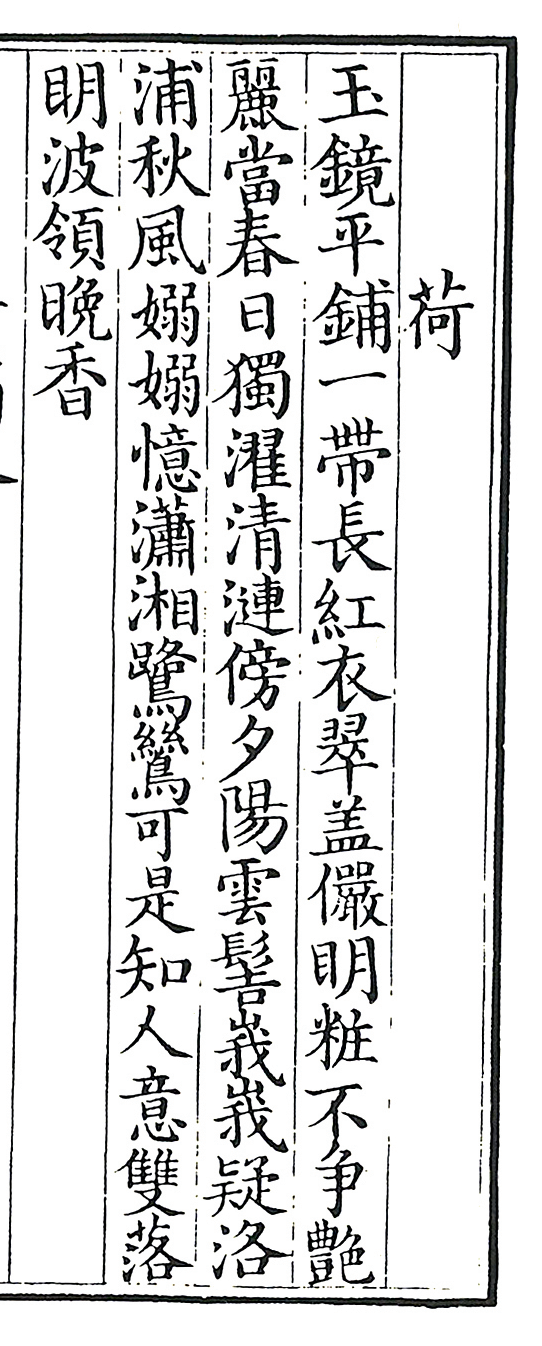 荷
玉鏡平鋪一帶長紅衣翠盖儼明粧不争艶
麗當春日獨濯清漣傍夕陽雲髻峩峩疑洛
浦秋風嫋嫋憶瀟湘鷺鷥可是知人意雙落
明波領晩香